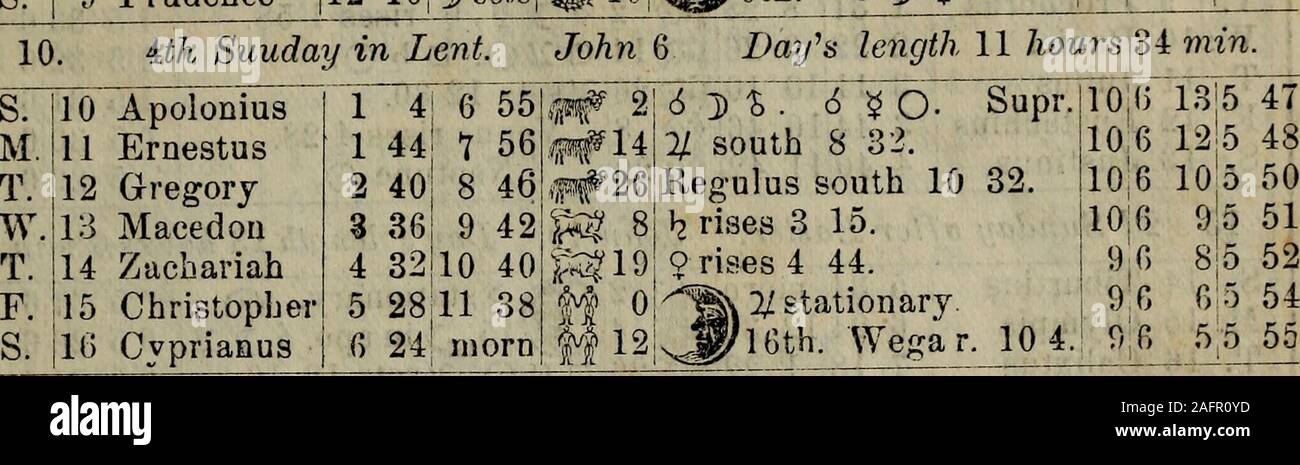 10. 4th Suuday in Lent. John 6 Day's length 11 hours 34 min.
S. 10 Apolonius 1 4 6 55 2 ☌ ☽ ♄. ☌ ☿ ○. Supr. 10 6 13 5 47
M. 11 Ernestus 1 44 7 56 14 ♃ south 8 32. 10 6 12 5 48
T. 12 Gregory 2 40 8 46 26 Regulus south 10 32. 10 6 10 5 50
W. 13 Macedon 3 36 9 42 8 ♄ rises 3 15. 10 6 9 5 51
T. 14 Zachariah 4 32 10 40 19 ♀ rises 4 44. 9 6 8 5 52
F. 15 Christopher 5 28 11 38 0 ♃ stationary. 9 6 6 5 54
S. 16 Cyprianus 6 24 morn 12 16th. Wega r. 10 4. 9 6 5 5 55
alamy
Image ID: 2AFR0YD
www.alamy.com